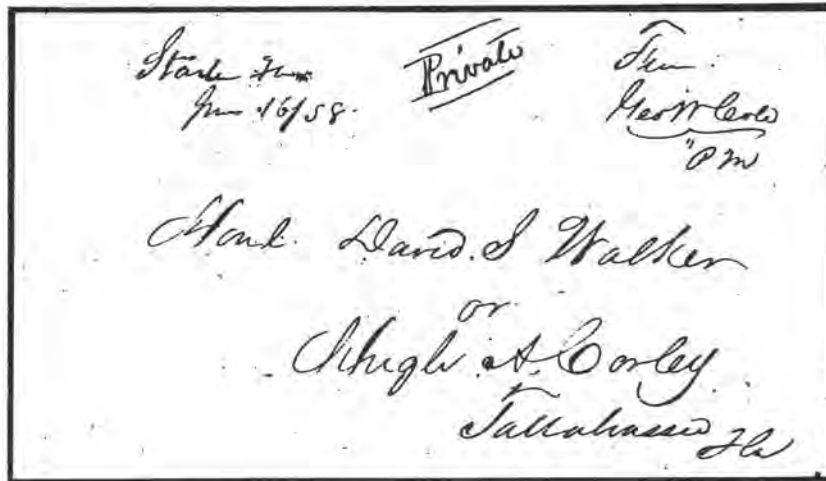 Starke Fla
Jun 16/58.
Private
Free
Geo W Cole
"P M
Honl. David. S Walker
or
Hugh A. Corley
Tallahassee
Fla